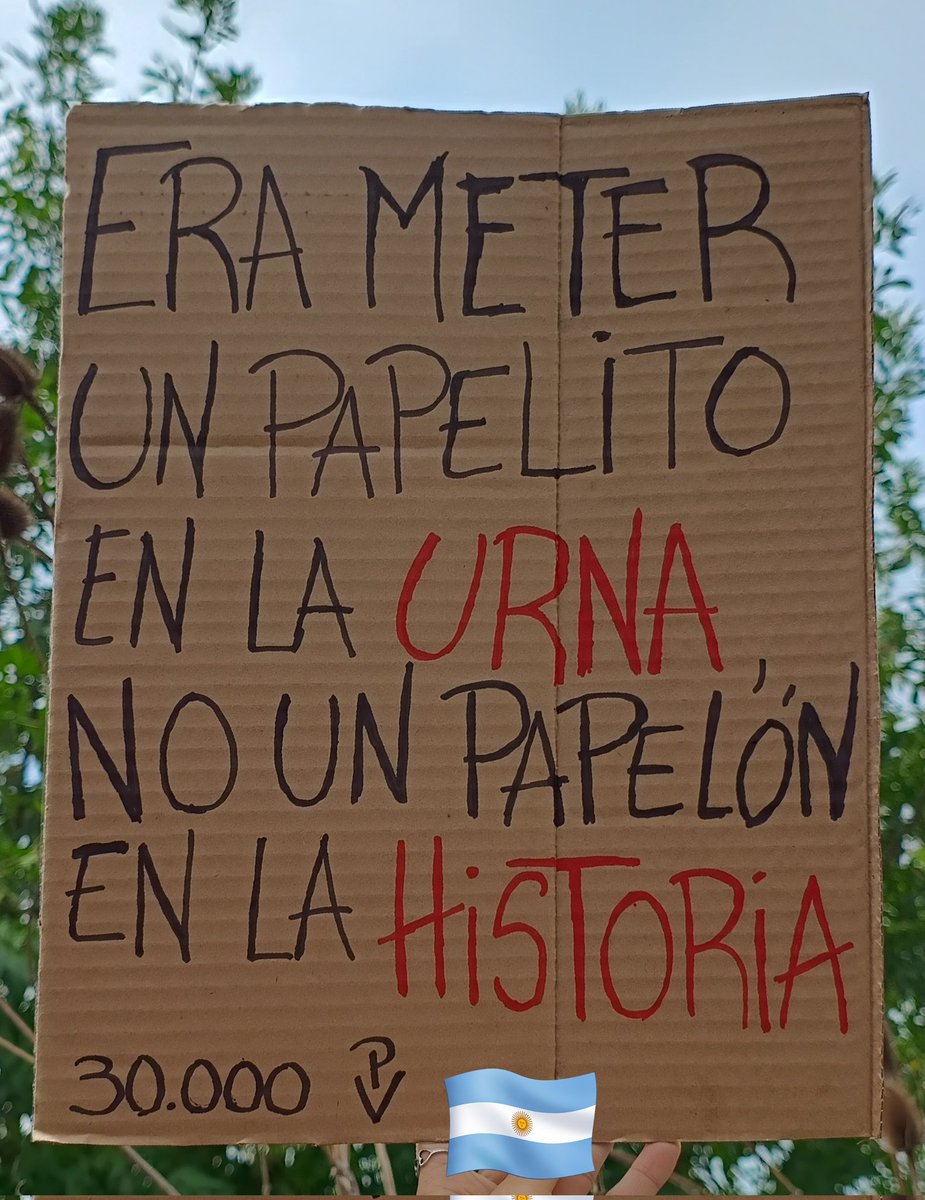 ERA METER
UN PAPELiTO
EN LA URNA,
NO UN PAPELÓN
EN LA HiSTORiA
30.000